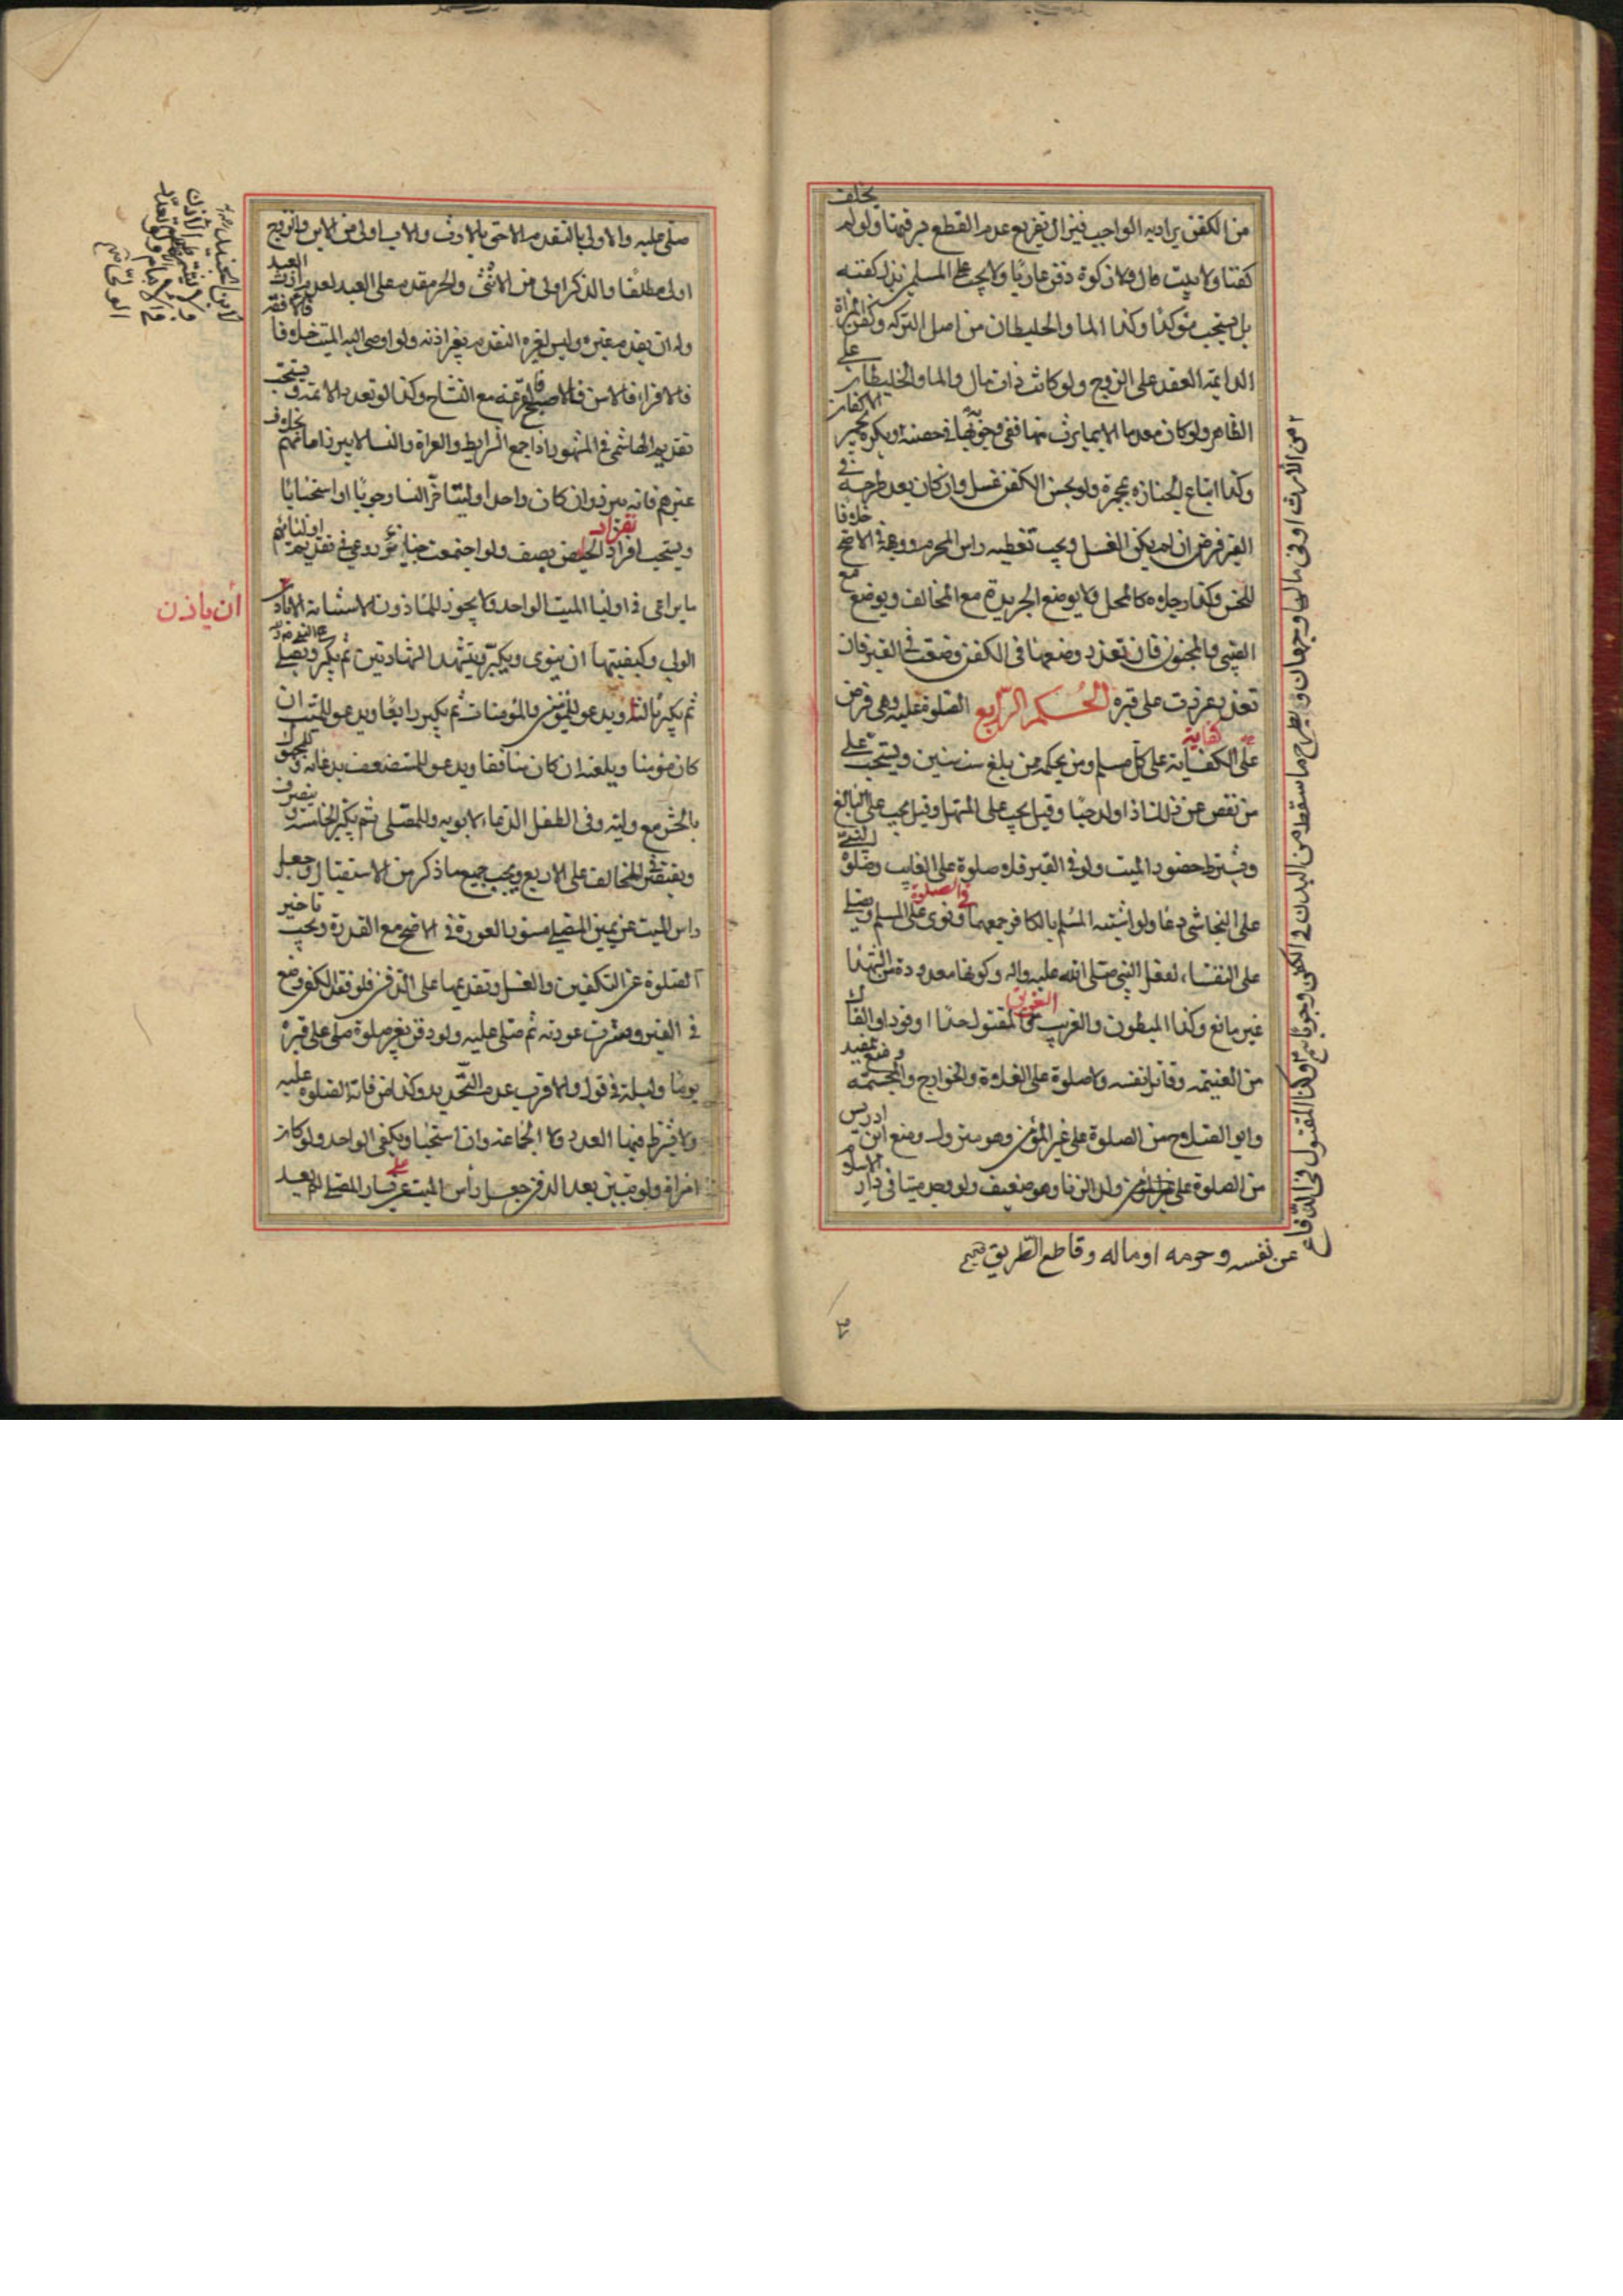 من الكفن يراد به الواجب فيزال تفريع عدم القطع فيهما ولو لم يخلف
كفنا ولا بيت مال ولا زكوة دفن عاريا ولا يجب على المسلم بذل كفنه
بل يستحب مؤكدا وكذا الماء والخليطان من اصل التركة وكفن المراة
الدائمة العقد على الزوج ولو كانت ذات مال والماء والخليطان على
الظاهر ولو كان معدما الا بما يرث منها ففي وجوبها في حصته ويكره تجمير الاكفان
وكذا اتباع الجنازة بمجمرة ولو نجس الكفن غسل وان كان بعد طرحه في
القبر قرض ان لم يمكن الغسل ويجب تغطية راس المحرم ووجهه في الاصح خلافا
للحسن وكذا رجلاه كالمحل ولا يوضع الجريدة مع المخالف ويوضع مع
الصبي والمجنون فان تعذر وضعها في الكفن وضعت في القبر فان
تعذر غرزت على قبره الحكم الرابع الصلوة عليه وهي فرض
على الكفاية على كل مسلم ومن بحكمه ممن بلغ ست سنين ويستحب على
من نقص عن ذلك اذا ولد حيا وقيل يجب على المستهل وقيل يجب على البالغ
ويشترط حضور الميت ولو في القبر فلا صلوة على الغايب وصلوة النبي
على النجاشي دعاء ولو اشتبه المسلم بالكافر جمعهما في الصلوة ونوى على المسلم ويصلى
على النفساء لفعل النبي صلى الله عليه واله وكونها معدودة من الشهداء
غير مانع وكذا المبطون والغريب الغريق والمقتول حدا او قودا والغال
من الغنيمة وقاتل نفسه ولا صلوة على الغلاة والخوارج والمجسمة ومنع المفيد
وابو الصلاح من الصلوة على غير المؤمن وهو متروك ومنع ابن ادريس
من الصلوة على ولد الزنا وهو ضعيف ولو وجد ميتا في دار الاسلام
عن نفسه وحرمه او ماله وقاطع الطريق صح
صلى عليه والاولى بالتقدم الاحق بالارث والاب اولى من الابن والزوج
اولى مطلقا والذكر اولى من الانثى والحر مقدم على العبد
وله ان يقدم غيره وليس لغيره التقدم بغير اذنه ولو اوصى اليه الميت خلافا
فالاقرا فالاسن فالاصبح وكذا لو تعدد الائمة ويستحب
تقديم الهاشمي في المشهور اذا جمع الشرايط والعراة والنساء لا يبرز امامهم بخلاف
غيرهم فانه يبرز وان كان واحدا وليتاخر النساء وجوبا او استحبابا
ويستحب انفراد الحايض بصف ولو اجتمعت جنايز روعي في تقديم اوليائهم
ما يراعى في اولياء الميت الواحد ولا يجوز للماذون الاستنابة الا باذن
ان ياذن
الولي وكيفيتها ان ينوى ويكبر ويتشهد الشهادتين ثم يكبر ويصلى على النبي
ثم يكبر ثالثا ويدعو للمؤمنين والمؤمنات ثم يكبر رابعا ويدعو للميت ان
كان مؤمنا ويلعنه ان كان منافقا ويدعو للمستضعف بدعائه وللمجهول
بالحشر مع وليه وفي الطفل الدعاء لابويه وللمصلى ثم يكبر الخامسة وينصرف
ويقتصر في المخالف على الاربع ويجب جميع ما ذكر من الاستقبال وجعل
راس الميت عن يمين المصلى مستور العورة في الاصح مع القدرة ويجب تاخير
الصلوة عن التكفين والغسل وتقديمها على الدفن فلو فقد الكفن وضع
في القبر وسترت عورته ثم صلى عليه ولو دفن بغير صلوة صلى على قبره
يوما وليلة في قول والاقرب عدم التحديد وكذا من فاتته الصلوة عليه
ولا يشترط فيها العدد ولا الجماعة وان استحبا ويكفي الواحد ولو كان
امراة ولو تبين بعد الدفن جعل راس الميت على يسار المصلى لم يعد